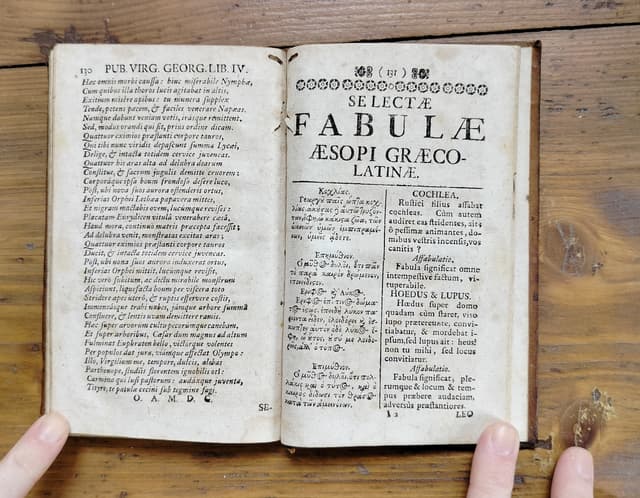 130 PUB. VIRG. GEORG. LIB. IV.
Hæc omnis morbi caussa: hinc miserabile Nymphæ,
Cum quibus illa choros lucis agitabat in altis,
Exitium misere apibus: tu munera supplex
Tende, petens pacem, & faciles venerare Napæas.
Namque dabunt veniam votis, irasque remittent.
Sed, modus orandi qui sit, prius ordine dicam.
Quattuor eximios præstanti corpore tauros,
Qui tibi nunc viridis depascunt summa Lycæi,
Delige, & intacta totidem cervice juvencas.
Quattuor his aras alta ad delubra dearum
Constitue, & sacrum jugulis demitte cruorem:
Corporaque ipsa boum frondoso desere luco,
Post, ubi nova suos aurora ostenderit ortus,
Inferias Orphei Lethæa papavera mittes,
Et nigram mactabis ovem, lucumque revises:
Placatam Eurydicen vitulâ venerabere cæsâ,
Haud mora, continuò matris præcepta facessit;
Ad delubra venit, monstratas excitat aras:
Quattuor eximios præstanti corpore tauros
Ducit, & intacta totidem cervice juvencas.
Post, ubi nova suos aurora induxerat ortus,
Inferias Orphei mittit, lucumque revisit.
Hic verò subitum, ac dictu mirabile monstrum
Aspiciunt, liquefacta boum per viscera toto
Stridere apes utero, & ruptis effervere costis,
Immensasque trahi nubes, jamque arbore summâ
Confluere, & lentis uvam demittere ramis.
Hæc super arvorum cultu pecorumque canebam,
Et super arboribus, Cæsar dum magnus ad altum
Fulminat Euphraten bello, victorque volentes
Per populos dat jura, viamque affectat Olympo:
Illo, Virgilium me, tempore, dulcis, alebat
Parthenope, studiis florentem ignobilis oti:
Carmina qui lusi pastorum: audaxque juventa,
Tityre, te patulæ cecini sub tegmine fagi.
O. A. M. D. G.
SE-
( 131 )
SELECTÆ
FABULÆ
ÆSOPI GRÆCO-
LATINÆ.
Κοχλίας.
Ἐπιμύθιον.
Ἐπιμύθιον.
COCHLEA.
Rustici filius assabat
cochleas. Cùm autem
audiret eas stridentes, ait:
ô pessimæ animantes, do-
mibus vestris incensis, vos
canitis?
Affabulatio.
Fabula significat omne
intempestivè factum, vi-
tuperabile.
HOEDUS & LUPUS.
Hædus super domo
quadam cùm staret, viso
lupo prætereunte, convi-
tiabatur, & mordebat i-
psum, sed lupus ait: heus!
non tu mihi, sed locus
convitiatur.
Affabulatio.
Fabula significat, ple-
rumque & locum & tem-
pus præbere audaciam,
adversùs præstantiores.
I 2 LEO